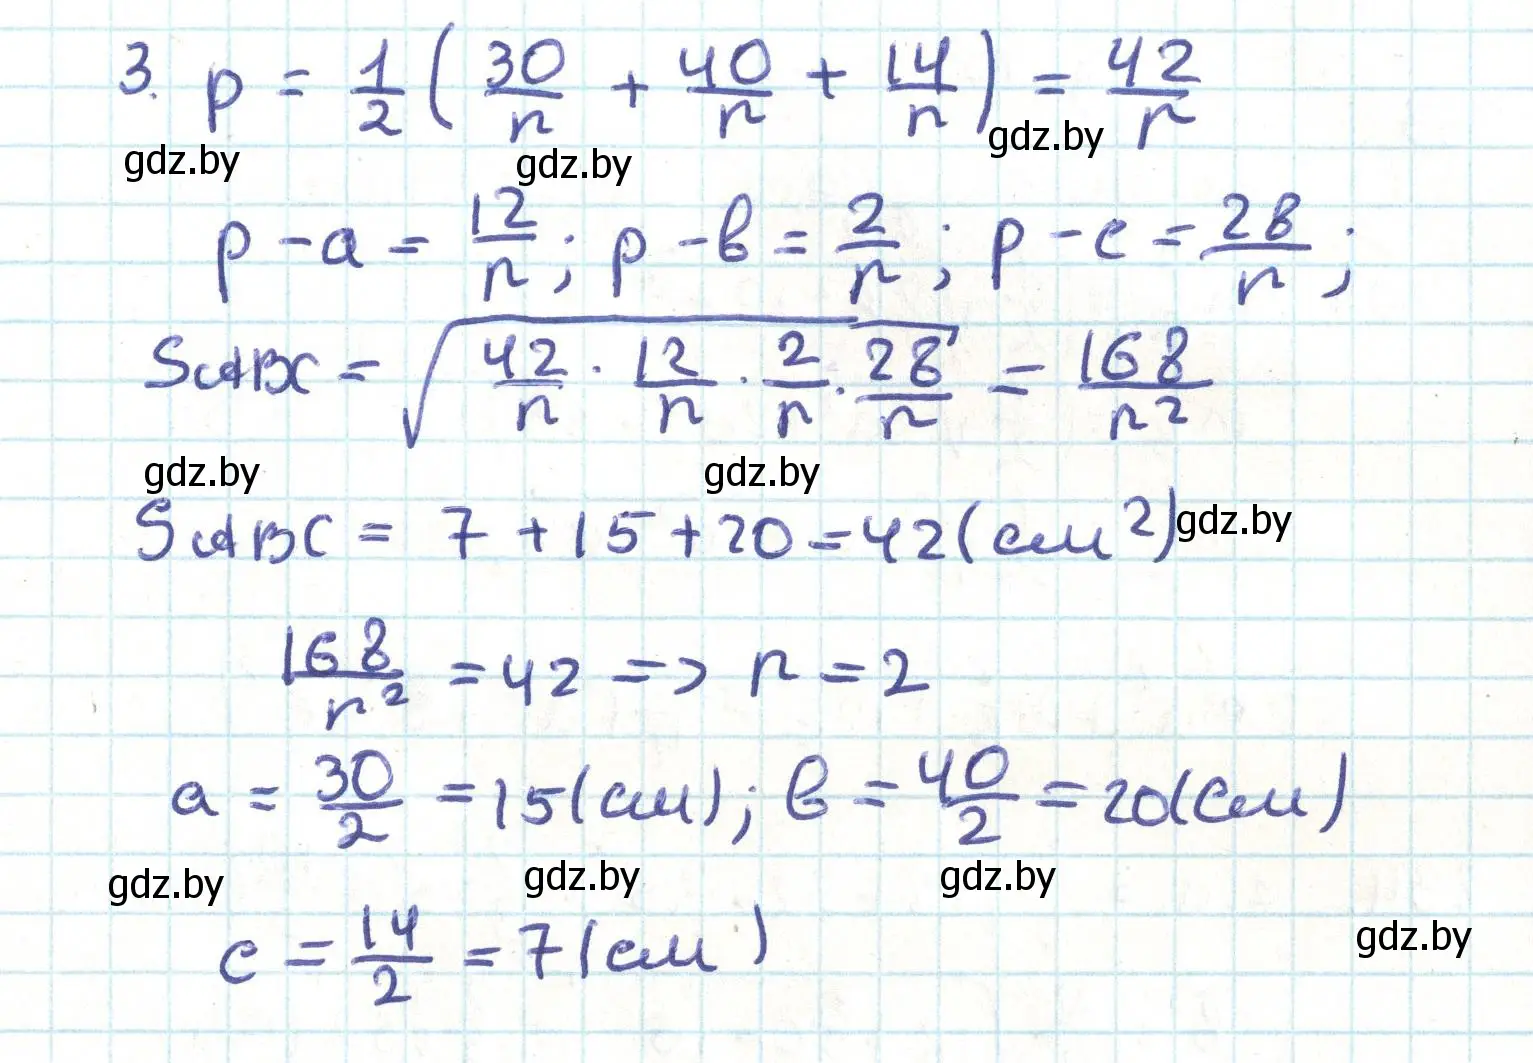 3. p = 1/2 (30/r + 40/r + 14/r) = 42/r
gdz.by gdz.by gdz.by
p - a = 12/r; p - в = 2/r; p - c = 28/r;
S ABC = √(42/r · 12/r · 2/r · 28/r) = 168/r²
gdz.by gdz.by
S ABC = 7 + 15 + 20 = 42 (см²) gdz.by
168/r² = 42 => r = 2
a = 30/2 = 15 (см); в = 40/2 = 20 (см)
gdz.by gdz.by gdz.by
c = 14/2 = 7 (см)
gdz.by